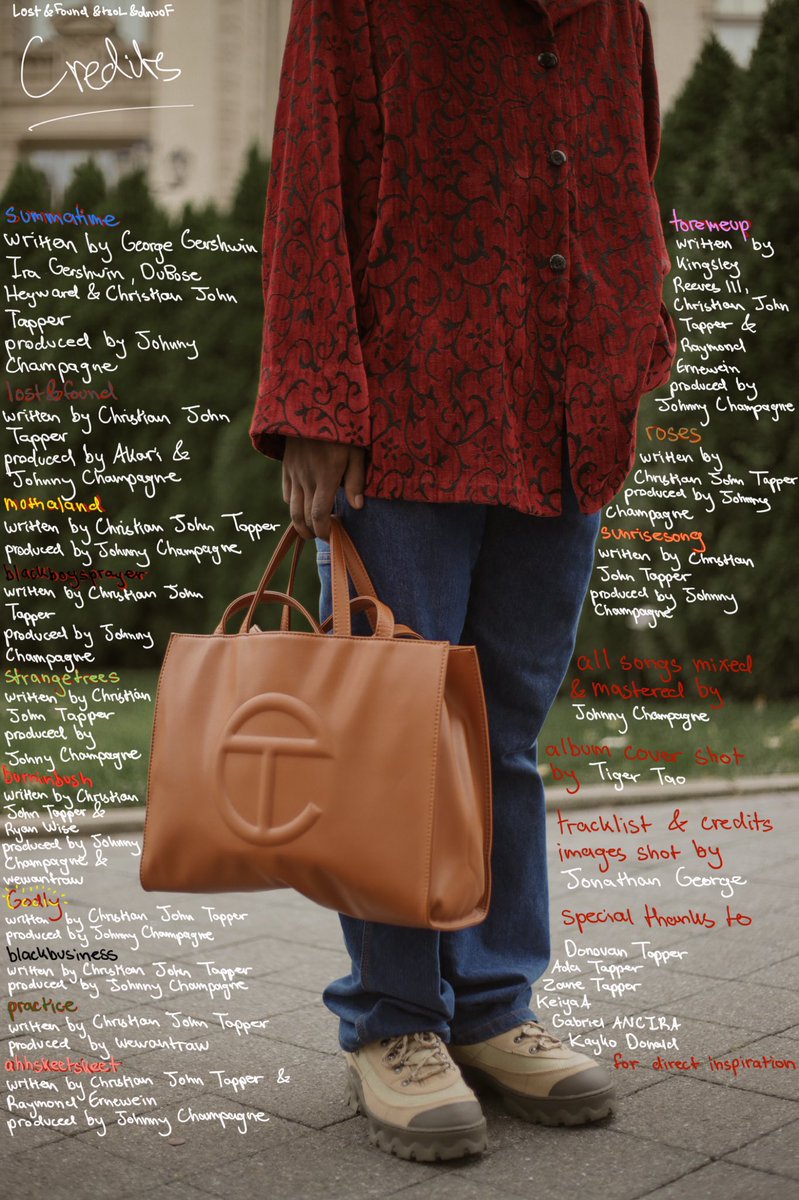 Lost&Found &tsoL &dnuoF
Credits
summatime
written by George Gershwin
Ira Gershwin, DuBose
Heyward & Christian John
Tapper
produced by Johnny
Champagne
lost&found
written by Christian John
Tapper
produced by Akari &
Johnny Champagne
mothaland
written by Christian John Tapper
produced by Johnny Champagne
blackboysprayer
written by Christian John
Tapper
produced by Johnny
Champagne
strangetrees
written by Christian
John Tapper
produced by
Johnny Champagne
burninbush
written by Christian
John Tapper &
Ryan Wise
produced by Johnny
Champagne &
wewantraw
Godly
written by Christian John Tapper
produced by Johnny Champagne
blackbusiness
written by Christian John Tapper
produced by Johnny Champagne
practice
written by Christian John Tapper
produced by wewantraw
ahhskeetskeet
written by Christian John Tapper &
Raymond Ernewein
produced by Johnny Champagne
toremeup
written by
Kingsley
Reeves III,
Christian John
Tapper &
Raymond
Ernewein
produced by
Johnny Champagne
roses
written by
Christian John Tapper
produced by Johnny
Champagne
sunrisesong
written by Christian
John Tapper
produced by Johnny
Champagne
all songs mixed
& mastered by
Johnny Champagne
album cover shot
by Tiger Tao
tracklist & credits
images shot by
Jonathan George
special thanks to
Donovan Tapper
Ada Tapper
Zane Tapper
KeiyaA
Gabriel ANCIRA
Kayko Donald
for direct inspiration